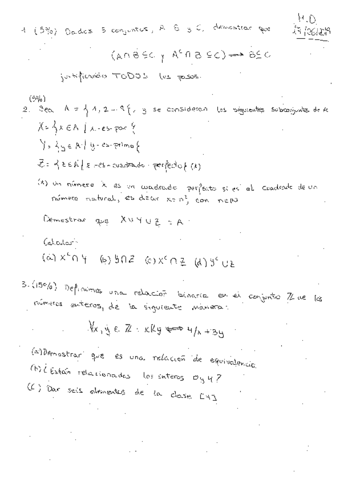 M.D
1. (5%) Dados 3 conjuntos, A, B y C, demostrar que
(A∩B⊆C y Aᶜ∩B⊆C) → B⊆C
justificando TODOS los pasos.
(5%)
2. Sea A = {1, 2 ... 9}, y se consideran los siguientes subconjuntos de A
X = {x∈A / x es par}
Y = {y∈A / y es primo}
Z = {z∈A / z es cuadrado perfecto} (*)
(*) un número x es un cuadrado perfecto si es el cuadrado de un
número natural, es decir x = n², con n∈ℕ
Demostrar que X∪Y∪Z = A
Calcular
(a) Xᶜ∩Y (b) Y∩Z (c) Xᶜ∩Z (d) Yᶜ∪Z
3. (15%) Definimos una relación binaria en el conjunto ℤ de los
números enteros, de la siguiente manera:
∀x, y ∈ ℤ: xRy ⟺ 4/x + 3y
(a) Demostrar que es una relación de equivalencia
(b) ¿Están relacionados los enteros 0 y 4?
(c) Dar seis elementos de la clase